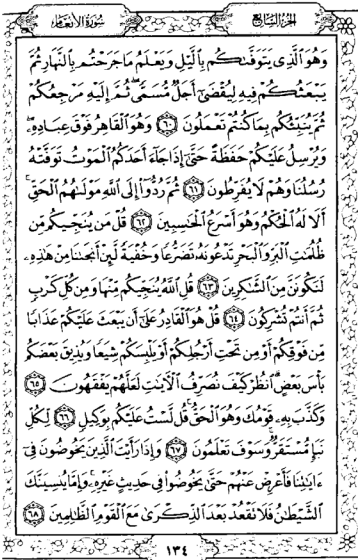 الجزء السابع
سورة الأنعام
وَهُوَ ٱلَّذِى يَتَوَفَّىٰكُم بِٱلَّيْلِ وَيَعْلَمُ مَا جَرَحْتُم بِٱلنَّهَارِ ثُمَّ
يَبْعَثُكُمْ فِيهِ لِيُقْضَىٰٓ أَجَلٌ مُّسَمًّى ثُمَّ إِلَيْهِ مَرْجِعُكُمْ
ثُمَّ يُنَبِّئُكُم بِمَا كُنتُمْ تَعْمَلُونَ ٦٠ وَهُوَ ٱلْقَاهِرُ فَوْقَ عِبَادِهِۦ
وَيُرْسِلُ عَلَيْكُمْ حَفَظَةً حَتَّىٰٓ إِذَا جَآءَ أَحَدَكُمُ ٱلْمَوْتُ تَوَفَّتْهُ
رُسُلُنَا وَهُمْ لَا يُفَرِّطُونَ ٦١ ثُمَّ رُدُّوٓا۟ إِلَى ٱللَّهِ مَوْلَىٰهُمُ ٱلْحَقِّ
أَلَا لَهُ ٱلْحُكْمُ وَهُوَ أَسْرَعُ ٱلْحَٰسِبِينَ ٦٢ قُلْ مَن يُنَجِّيكُم مِّن
ظُلُمَٰتِ ٱلْبَرِّ وَٱلْبَحْرِ تَدْعُونَهُۥ تَضَرُّعًا وَخُفْيَةً لَّئِنْ أَنجَىٰنَا مِنْ هَٰذِهِۦ
لَنَكُونَنَّ مِنَ ٱلشَّٰكِرِينَ ٦٣ قُلِ ٱللَّهُ يُنَجِّيكُم مِّنْهَا وَمِن كُلِّ كَرْبٍ
ثُمَّ أَنتُمْ تُشْرِكُونَ ٦٤ قُلْ هُوَ ٱلْقَادِرُ عَلَىٰٓ أَن يَبْعَثَ عَلَيْكُمْ عَذَابًا
مِّن فَوْقِكُمْ أَوْ مِن تَحْتِ أَرْجُلِكُمْ أَوْ يَلْبِسَكُمْ شِيَعًا وَيُذِيقَ بَعْضَكُم
بَأْسَ بَعْضٍ ٱنظُرْ كَيْفَ نُصَرِّفُ ٱلْءَايَٰتِ لَعَلَّهُمْ يَفْقَهُونَ ٦٥
وَكَذَّبَ بِهِۦ قَوْمُكَ وَهُوَ ٱلْحَقُّ قُل لَّسْتُ عَلَيْكُم بِوَكِيلٍ ٦٦ لِّكُلِّ
نَبَإٍ مُّسْتَقَرٌّ وَسَوْفَ تَعْلَمُونَ ٦٧ وَإِذَا رَأَيْتَ ٱلَّذِينَ يَخُوضُونَ فِىٓ
ءَايَٰتِنَا فَأَعْرِضْ عَنْهُمْ حَتَّىٰ يَخُوضُوا۟ فِى حَدِيثٍ غَيْرِهِۦ وَإِمَّا يُنسِيَنَّكَ
ٱلشَّيْطَٰنُ فَلَا تَقْعُدْ بَعْدَ ٱلذِّكْرَىٰ مَعَ ٱلْقَوْمِ ٱلظَّٰلِمِينَ ٦٨
١٣٤